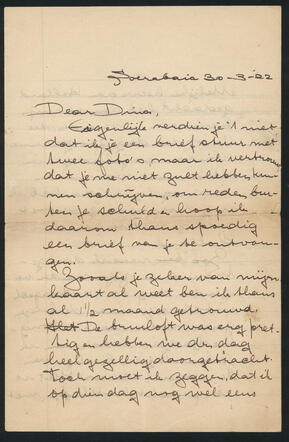 Soerabaia 30-3-22
Dear Dina,
Eigenlijk verdien je 't niet
dat ik je een brief stuur met
twee foto's, maar ik vertrouw
dat je me niet zult hebben kun-
nen schrijven, om reden bui-
ten je schuld en hoop ik
daarom thans spoedig
een brief van je te ontvan-
gen.
Zooals je zeker van mijn
kaart al weet ben ik thans
al 1½ maand getrouwd.
De bruiloft was erg pret-
tig en hebben we den dag
heel gezellig doorgebracht.
Toch moet ik zeggen, dat ik
op dien dag nog wel eens